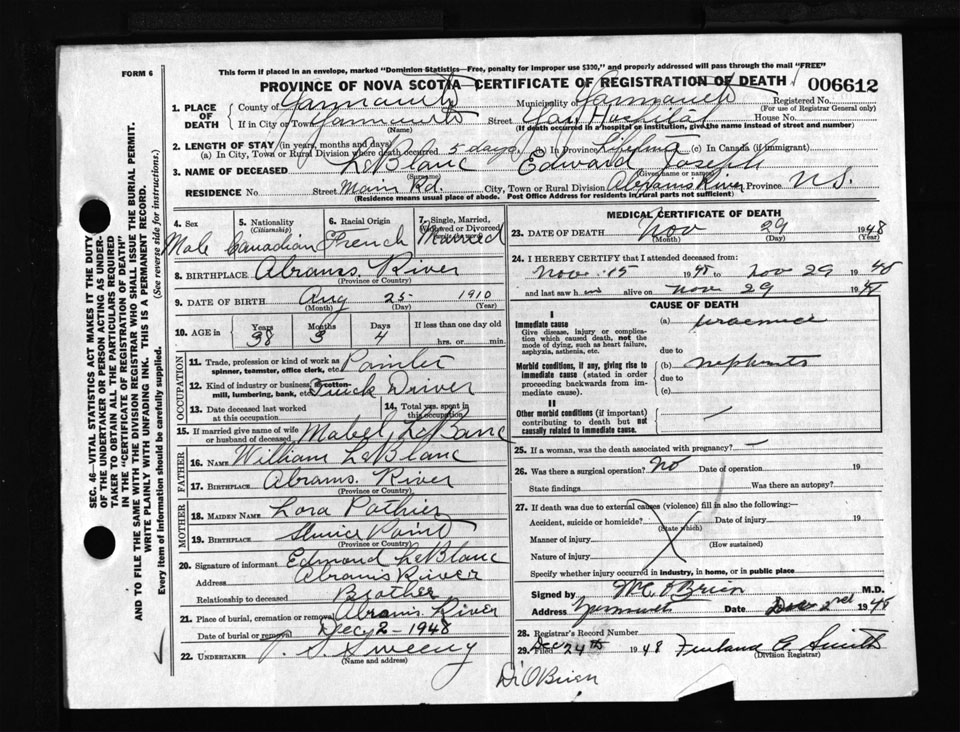 FORM 6
This form if placed in an envelope, marked "Dominion Statistics—Free, penalty for improper use $300," and properly addressed will pass through the mail "FREE"
PROVINCE OF NOVA SCOTIA—CERTIFICATE OF REGISTRATION OF DEATH
006612
SEC. 46—VITAL STATISTICS ACT MAKES IT THE DUTY
OF THE UNDERTAKER OR PERSON ACTING AS UNDER-
TAKER TO OBTAIN ALL THE PARTICULARS REQUIRED
IN THE "CERTIFICATE OF REGISTRATION OF DEATH"
AND TO FILE THE SAME WITH THE DIVISION REGISTRAR WHO SHALL ISSUE THE BURIAL PERMIT.
WRITE PLAINLY WITH UNFADING INK. THIS IS A PERMANENT RECORD.
Every item of Information should be carefully supplied. (See reverse side for instructions.)
1. PLACE OF DEATH
County of Yarmouth Municipality of Yarmouth Registered No.
(For use of Registrar General only)
If in City or Town Yarmouth Street Yar. Hospital House No.
(Name) (If death occurred in a hospital or institution, give the name instead of street and number)
2. LENGTH OF STAY (in years, months and days)
(a) In City, Town or Rural Division where death occurred 5 days (b) In Province Lifetime (c) In Canada (if immigrant)
3. NAME OF DECEASED LeBlanc Edward Joseph
(Surname) (Given name or names)
RESIDENCE No. Street Main Rd. City, Town or Rural Division Abrams River Province N.S.
(Residence means usual place of abode. Post Office Address for residents in rural parts not sufficient)
4. Sex Male
5. Nationality (Citizenship) Canadian
6. Racial Origin French
7. Single, Married, Widowed or Divorced (write the word) Married
8. BIRTHPLACE Abrams River
(Province or Country)
9. DATE OF BIRTH Aug 25 1910
(Month) (Day) (Year)
10. AGE in Years Months Days If less than one day old
38 3 4 hrs. or min.
OCCUPATION
11. Trade, profession or kind of work as spinner, teamster, office clerk, etc. Painter
12. Kind of industry or business, as cotton-mill, lumbering, bank, etc. Truck Driver
13. Date deceased last worked at this occupation
14. Total yrs. spent in this occupation
15. If married give name of wife or husband of deceased Mabel LeBlanc
FATHER
16. Name William LeBlanc
17. Birthplace Abrams River
MOTHER
18. Maiden Name Lora Pothier
19. Birthplace Sluice Point
(Province or Country)
20. Signature of informant Edmond LeBlanc
Address Abrams River
Relationship to deceased Brother
21. Place of burial, cremation or removal Abrams River
Date of burial or removal Decy 2 - 1948
22. UNDERTAKER J. S. Sweeny
(Name and address)
MEDICAL CERTIFICATE OF DEATH
23. DATE OF DEATH Nov 29 1948
(Month) (Day) (Year)
24. I HEREBY CERTIFY that I attended deceased from:
Nov. 15 1948 to Nov 29 1948
and last saw h im alive on Nov 29 1948
CAUSE OF DEATH
I
Immediate cause (a) uraemia
Give disease, injury or complication which caused death, not the mode of dying, such as heart failure, asphyxia, asthenia, etc.
due to
Morbid conditions, if any, giving rise to immediate cause (stated in order proceeding backwards from immediate cause).
(b) nephritis
due to
(c)
II
Other morbid conditions (if important) contributing to death but not causally related to immediate cause.
25. If a woman, was the death associated with pregnancy? —
26. Was there a surgical operation? No Date of operation 19
State findings Was there an autopsy?
27. If death was due to external causes (violence) fill in also the following:—
Accident, suicide or homicide? Date of injury 19
(State which)
Manner of injury
(How sustained)
Nature of injury
Specify whether injury occurred in industry, in home, or in public place
Signed by M.C. O'Brien M.D.
Address Yarmouth Date Dec 2nd 1948
28. Registrar's Record Number
29. Filed Dec 24th 1948
(Division Registrar)
Dr. O'Brien